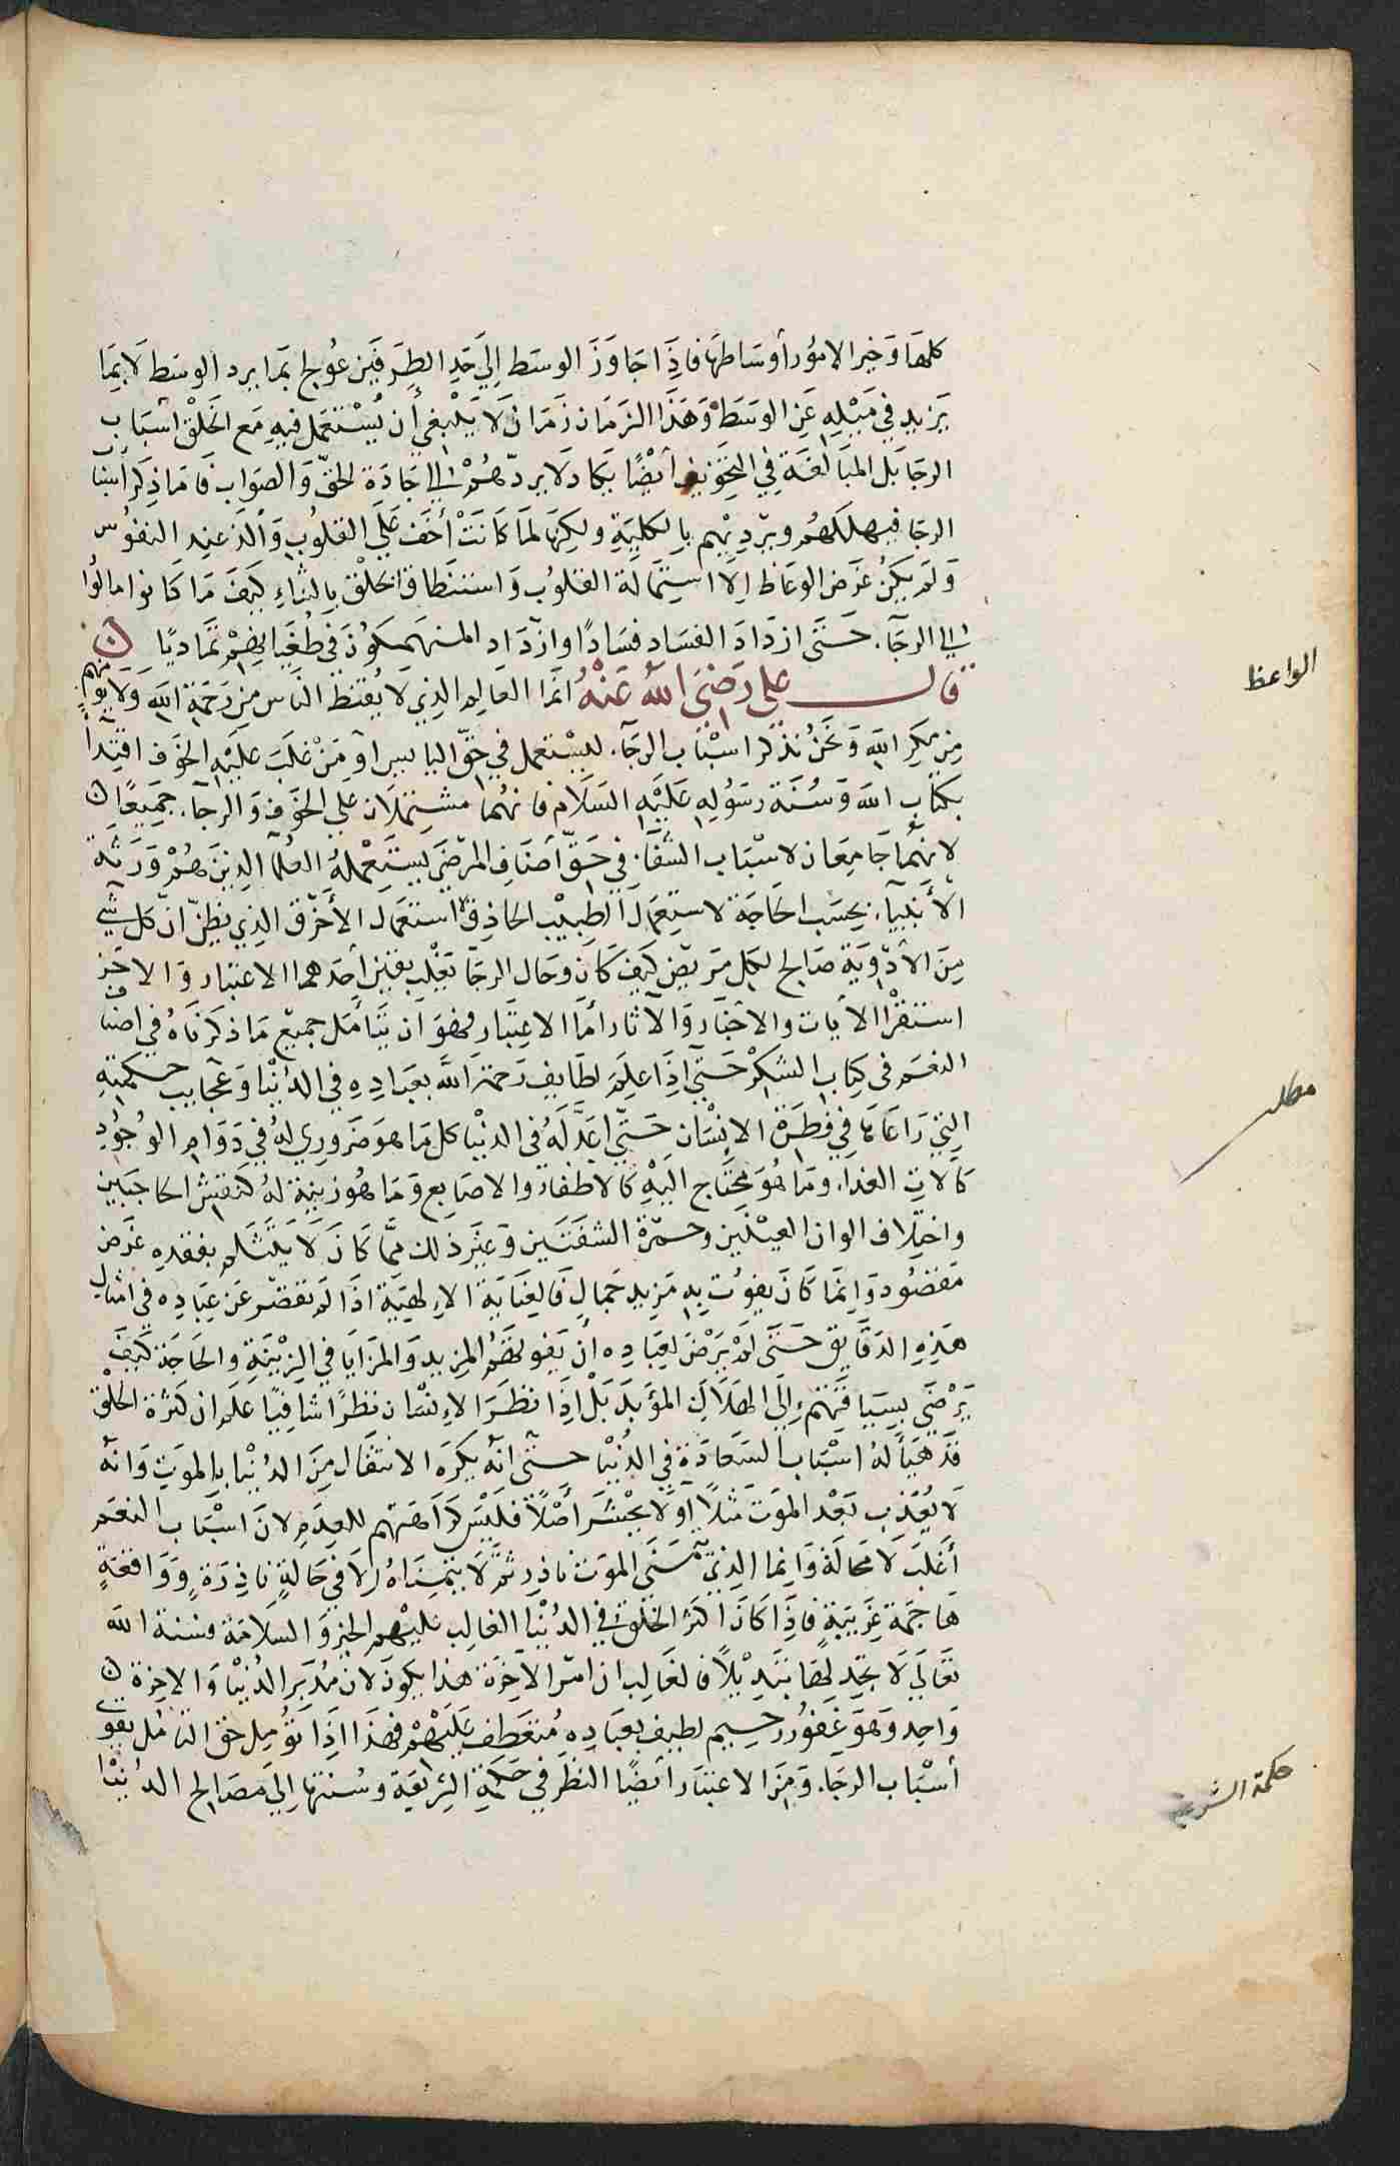 كلها وخير الامور أوساطها فاذا جاوز الوسط الى حد الطرفين عولج بما يرد الوسط لا بما
يزيد في ميله عن الوسط وهذا الزمان زمان لا ينبغي أن يستعمل فيه مع الخلق أسباب
الرجا بل المبالغة في التخويف أيضا يكاد لا يردهم الى جادة الحق والصواب فاما ذكر أسباب
الرجا فيهلكهم ويرديهم بالكلية ولكنها لما كانت أخف على القلوب وألذ عند النفوس
ولم يكن غرض الوعاظ الا استمالة القلوب واستنطاق الخلق بالثناء كيف ما كانوا مالوا
الى الرجاء حتى ازداد الفساد فسادا وازداد المنهمكون في طغيانهم تماديا
قال علي رضي الله عنه انما العالم الذي لا يقنط الناس من رحمة الله ولا يؤمنهم
من مكر الله ونحن نذكر اسباب الرجاء ليستعمل في حق اليايس او من غلب عليه الخوف اقتداء
بكتاب الله وسنة رسوله عليه السلام فانهما مشتملان على الخوف والرجاء جميعا
لانهما جامعان لاسباب الشفاء في حق أصناف المرضى ليستعمله العلماء الذين هم ورثة
الأنبياء بحسب الحاجة لاستعمال الطبيب الحاذق لا استعمال الأخرق الذي يظن ان كل شي
من الأدوية صالح لكل مريض كيف كان وحال الرجا يغلب بفنين أحدهما الاعتبار والاخر
استقرا الايات والاخبار والآثار أما الاعتبار فهو ان يتأمل جميع ما ذكرناه في اصناف
النعم في كتاب الشكر حتى اذا علم لطايف رحمة الله بعباده في الدنيا وعجايب حكمته
التي راعاها في فطرة الانسان حتى اعد له في الدنيا كل ما هو ضروري له في دوام الوجود
كالات الغذاء وما هو محتاج اليه كالاظفار والاصابع وما هو زينة له كتقيش الحاجبين
واختلاف الوان العينين وحمرة الشفتين وغير ذلك مما كان لا يتثلم بفقده غرض
مقصود وانما كان يفوت به مزيد جمال فالعناية الالهية اذا لم تقصر عن عباده في امثال
هذه الدقايق حتى لم يرض لعباده أن يفوتهم المزيد والمزايا في الزينة والحاجة كيف
يرضى بسياقتهم الى الهلاك المؤبد بل اذا نظر الإنسان نظرا شافيا علم ان كثرة الخلق
قد هيأ له اسباب السعادة في الدنيا حتى انه يكره الانتقال من الدنيا بالموت وانه
لا يعذب بعد الموت مثلا أو لا يحشر أصلا فليس كراهتهم للعدم لان اسباب النعم
أغلب لا محالة وانما الذي يتمنى الموت نادر ثم لا يتمناه الا في حالة نادرة وواقعة
هاجمة غريبة فاذا كان اكثر الخلق في الدنيا الغالب عليهم الخير والسلامة فسنة الله
تعالى لا تجد لها تبديلا فالغالب ان امر الآخرة هذا يكون لان مدبر الدنيا والاخرة
واحد وهو غفور رحيم لطيف بعباده متعطف عليهم فهذا اذا تؤمل حق التأمل يقوى
أسباب الرجاء ومن الاعتبار أيضا النظر في حكمة الشريعة وسنتها الى مصالح الدنيا
الواعظ
مطلب
حكمة الشريعة